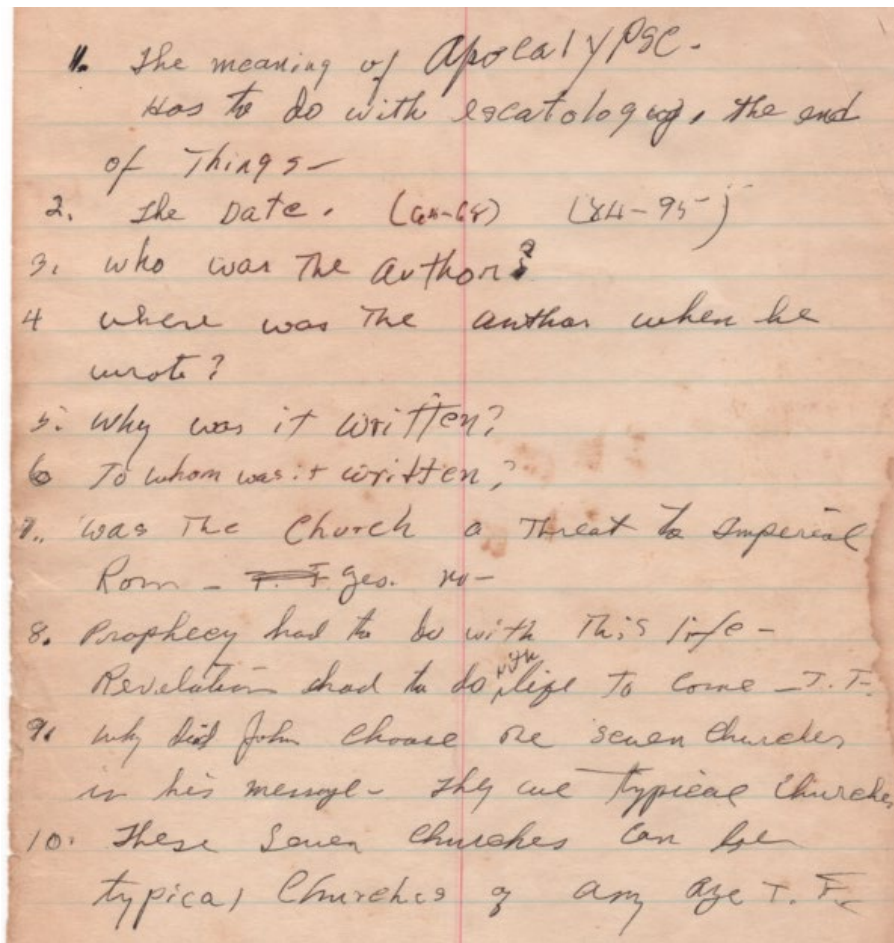 1. The meaning of Apocalypse.
Has to do with escatology, the end
of Things—
2. The Date. (64-68) (84-95)
3. who was The author?
4 where was The author when he
wrote?
5. Why was it written?
6 To whom was it written?
7. was The Church a Threat to Imperial
Rom — T. F. yes. no—
8. Prophecy had to do with This life —
Revelation had to do with life To come — T. F.
9. Why did John choose the seven Churches
in his message— They are typical Churches
10. These seven Churches can be
typical Churches of any age T. F.